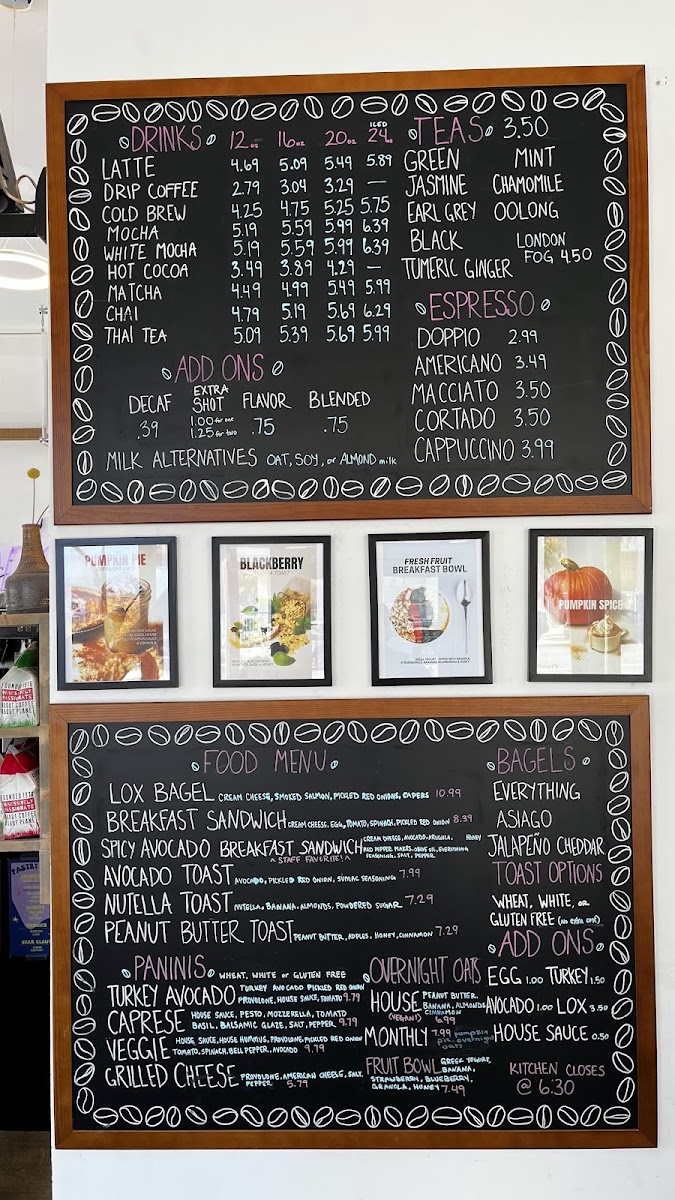 DRINKS 12oz 16oz 20oz ICED 24oz
LATTE 4.69 5.09 5.49 5.89
DRIP COFFEE 2.79 3.04 3.29 —
COLD BREW 4.25 4.75 5.25 5.75
MOCHA 5.19 5.59 5.99 6.39
WHITE MOCHA 5.19 5.59 5.99 6.39
HOT COCOA 3.49 3.89 4.29 —
MATCHA 4.49 4.99 5.49 5.99
CHAI 4.79 5.19 5.69 6.29
THAI TEA 5.09 5.39 5.69 5.99
ADD ONS
DECAF EXTRA SHOT FLAVOR BLENDED
.39 1.00 for one .75 .75
1.25 for two
MILK ALTERNATIVES OAT, SOY, or ALMOND milk
TEAS 3.50
GREEN MINT
JASMINE CHAMOMILE
EARL GREY OOLONG
BLACK LONDON
FOG 4.50
TUMERIC GINGER
ESPRESSO
DOPPIO 2.99
AMERICANO 3.49
MACCIATO 3.50
CORTADO 3.50
CAPPUCCINO 3.99
PUMPKIN PIE
BLACKBERRY
FRESH FRUIT
BREAKFAST BOWL
PUMPKIN SPICE
FOOD MENU
LOX BAGEL CREAM CHEESE, SMOKED SALMON, PICKLED RED ONIONS, CAPERS 10.99
BREAKFAST SANDWICH CREAM CHEESE, EGG, TOMATO, SPINACH, PICKLED RED ONION 8.99
SPICY AVOCADO BREAKFAST SANDWICH CREAM CHEESE, AVOCADO, ARUGULA, HONEY
RED PEPPER FLAKES, OLIVE OIL, EVERYTHING
SEASONING, SALT, PEPPER
^ STAFF FAVORITE! ^
AVOCADO TOAST AVOCADO, PICKLED RED ONION, SUMAC SEASONING 7.99
NUTELLA TOAST NUTELLA, BANANA, ALMONDS, POWDERED SUGAR 7.29
PEANUT BUTTER TOAST PEANUT BUTTER, APPLES, HONEY, CINNAMON 7.29
PANINIS WHEAT, WHITE or GLUTEN FREE
TURKEY AVOCADO TURKEY AVOCADO PICKLED RED ONION
PROVOLONE, HOUSE SAUCE, TOMATO 9.79
CAPRESE HOUSE SAUCE, PESTO, MOZZERELLA, TOMATO
BASIL, BALSAMIC GLAZE, SALT, PEPPER 9.79
VEGGIE HOUSE SAUCE, HOUSE HUMMUS, PROVOLONE, PICKLED RED ONION
TOMATO, SPINACH, BELL PEPPER, AVOCADO 9.79
GRILLED CHEESE PROVOLONE, AMERICAN CHEESE, SALT,
PEPPER 5.79
OVERNIGHT OATS
HOUSE PEANUT BUTTER,
BANANA, ALMONDS
(VEGAN!) CINNAMON
6.99
MONTHLY 7.99 pumpkin
pie overnight
oats
FRUIT BOWL GREEK YOGURT,
BANANA,
STRAWBERRY, BLUEBERRY,
GRANOLA, HONEY 7.49
BAGELS
EVERYTHING
ASIAGO
JALAPEÑO CHEDDAR
TOAST OPTIONS
WHEAT, WHITE, or
GLUTEN FREE (no extra cost)
ADD ONS
EGG 1.00 TURKEY 1.50
AVOCADO 1.00 LOX 3.50
HOUSE SAUCE 0.50
KITCHEN CLOSES
@ 6:30